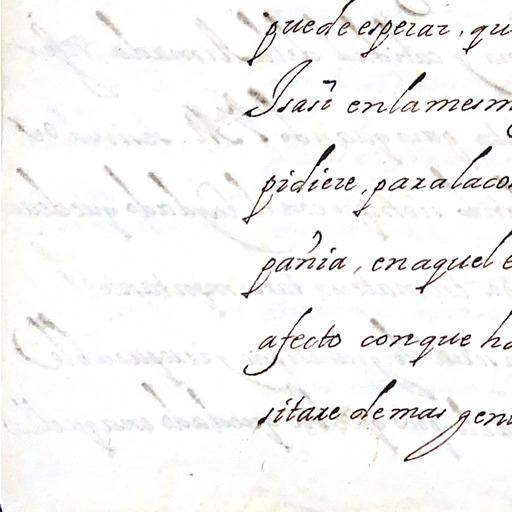 puede esperar, qu
Isasi enlamesm
pidiere, paralaco
pañia, enaquel e
afecto conque ha
sitare demas gen